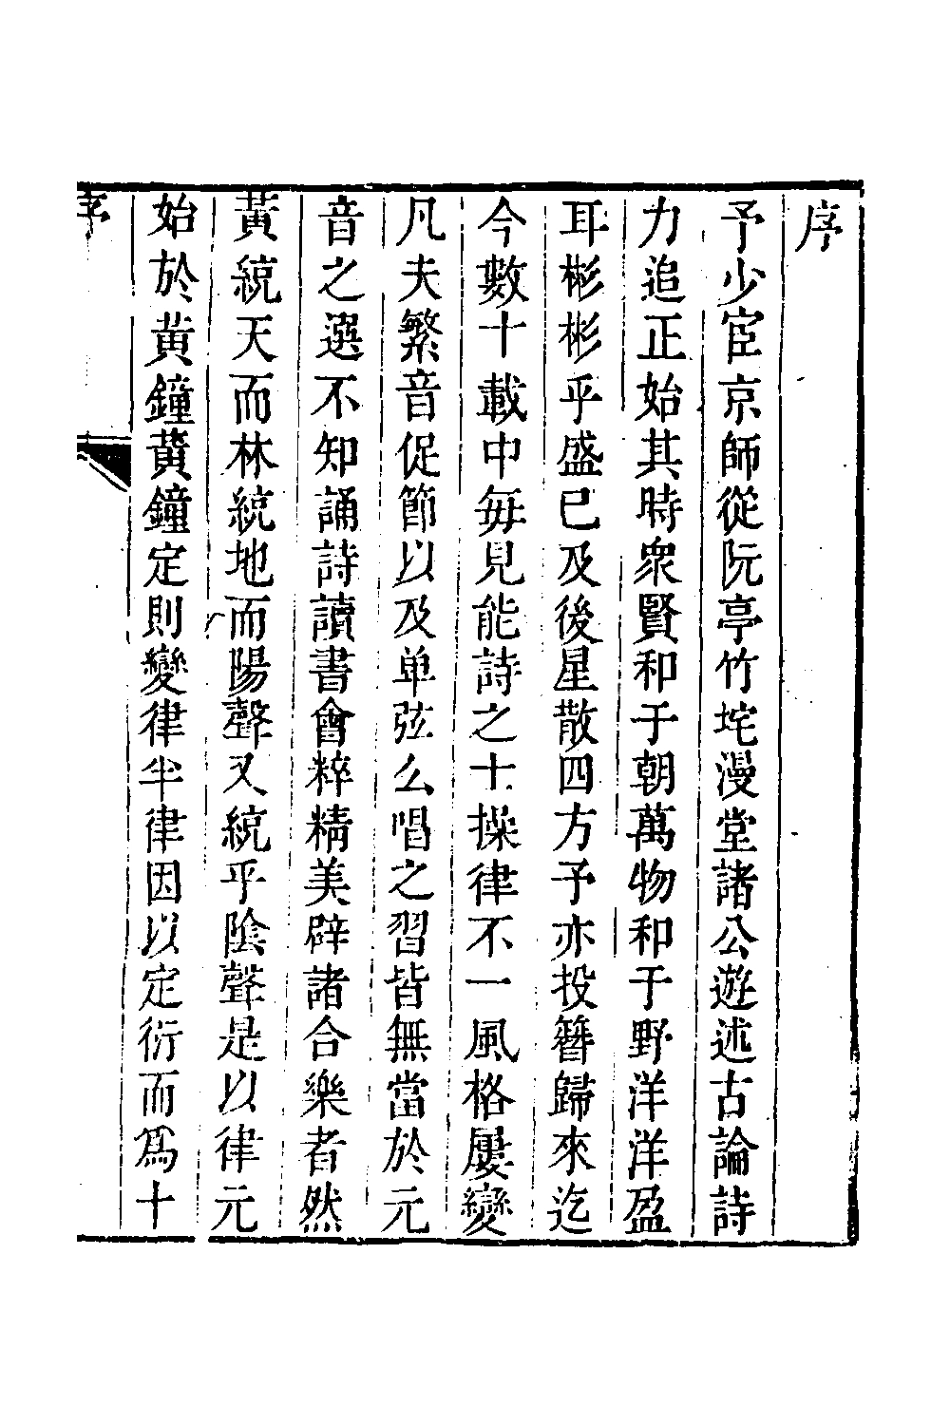 序
予少宦京師從阮亭竹垞漫堂諸公遊述古論詩
力追正始其時衆賢和于朝萬物和于野洋洋盈
耳彬彬乎盛已及後星散四方予亦投簪歸來迄
今數十載中每見能詩之士操律不一風格屢變
凡夫繁音促節以及单弦么唱之習皆無當於元
音之選不知誦詩讀書會粹精美辟諸合樂者然
黃統天而林統地而陽聲又統乎陰聲是以律元
始於黃鐘黃鐘定則變律半律因以定衍而爲十
序